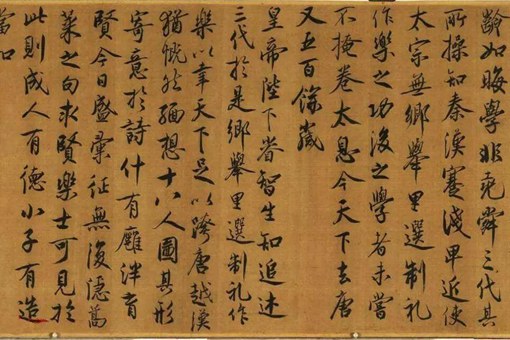 齡如晦學非堯舜三代其
所操知秦漢蹇淺卑近使
太宗無鄉舉里選制礼
作樂之功後之學者未嘗
不掩卷太息今天下去唐
又五百餘歲
皇帝陛下睿智生知追述
三代於是鄉舉里選制礼作
樂以幸天下足以跨唐越漢
猶慨然緬想十八人圖其形
寄意於詩什有廱泮育
賢今日盛彙征無復隱蒿
萊之句求賢樂士可見於
此則成人有德小子有造
當如